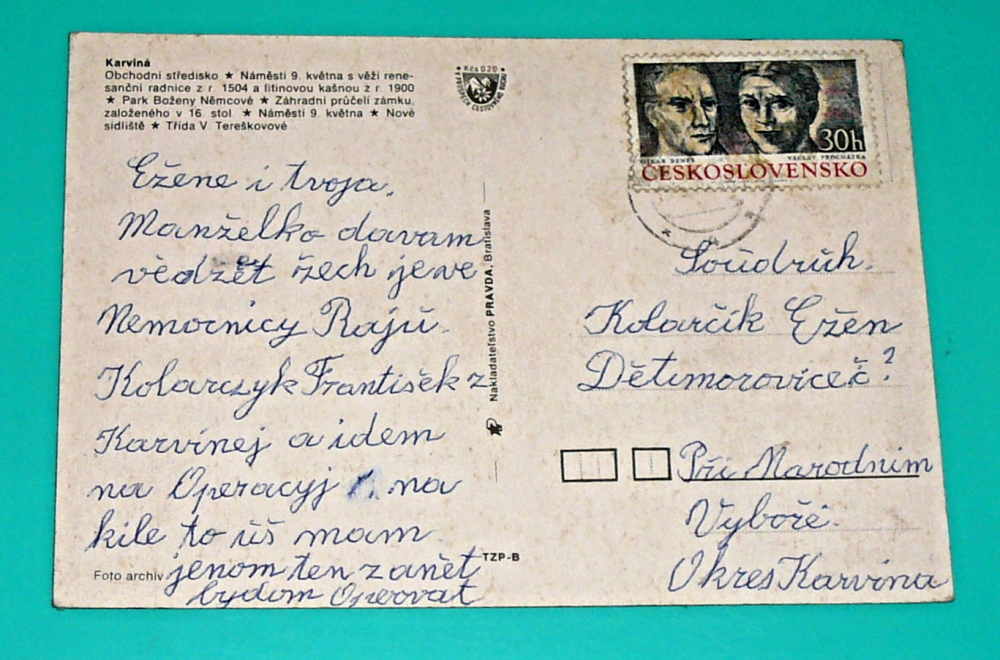 Karviná
Obchodní středisko ★ Náměstí 9. května s věží rene-
sanční radnice z r. 1504 a litinovou kašnou z r. 1900
★ Park Boženy Němcové ★ Záhradní průčelí zámku,
založeného v 16. stol. ★ Náměstí 9. května ★ Nové
sídliště ★ Třída V. Tereškovové
Kčs 0,20
30h
OTKAR BENEŠ VÁCLAV PROCHÁZKA
ČESKOSLOVENSKO
Ežene i tvoja,
Manželko davam
vědzět žech je we
Nemocnicy Rajú.
Kolarczyk František z
Karvinej a idem
na Operacyj na
kile to úš mam
jenom ten zanět
bydom Operovat
Nakladateľstvo PRAVDA, Bratislava
TZP-B
Foto archív
Soúdrúh.
Kolarčík Ežen
Dětmorovicež?
Při Narodnim
Vyboře.
Okres Karvina